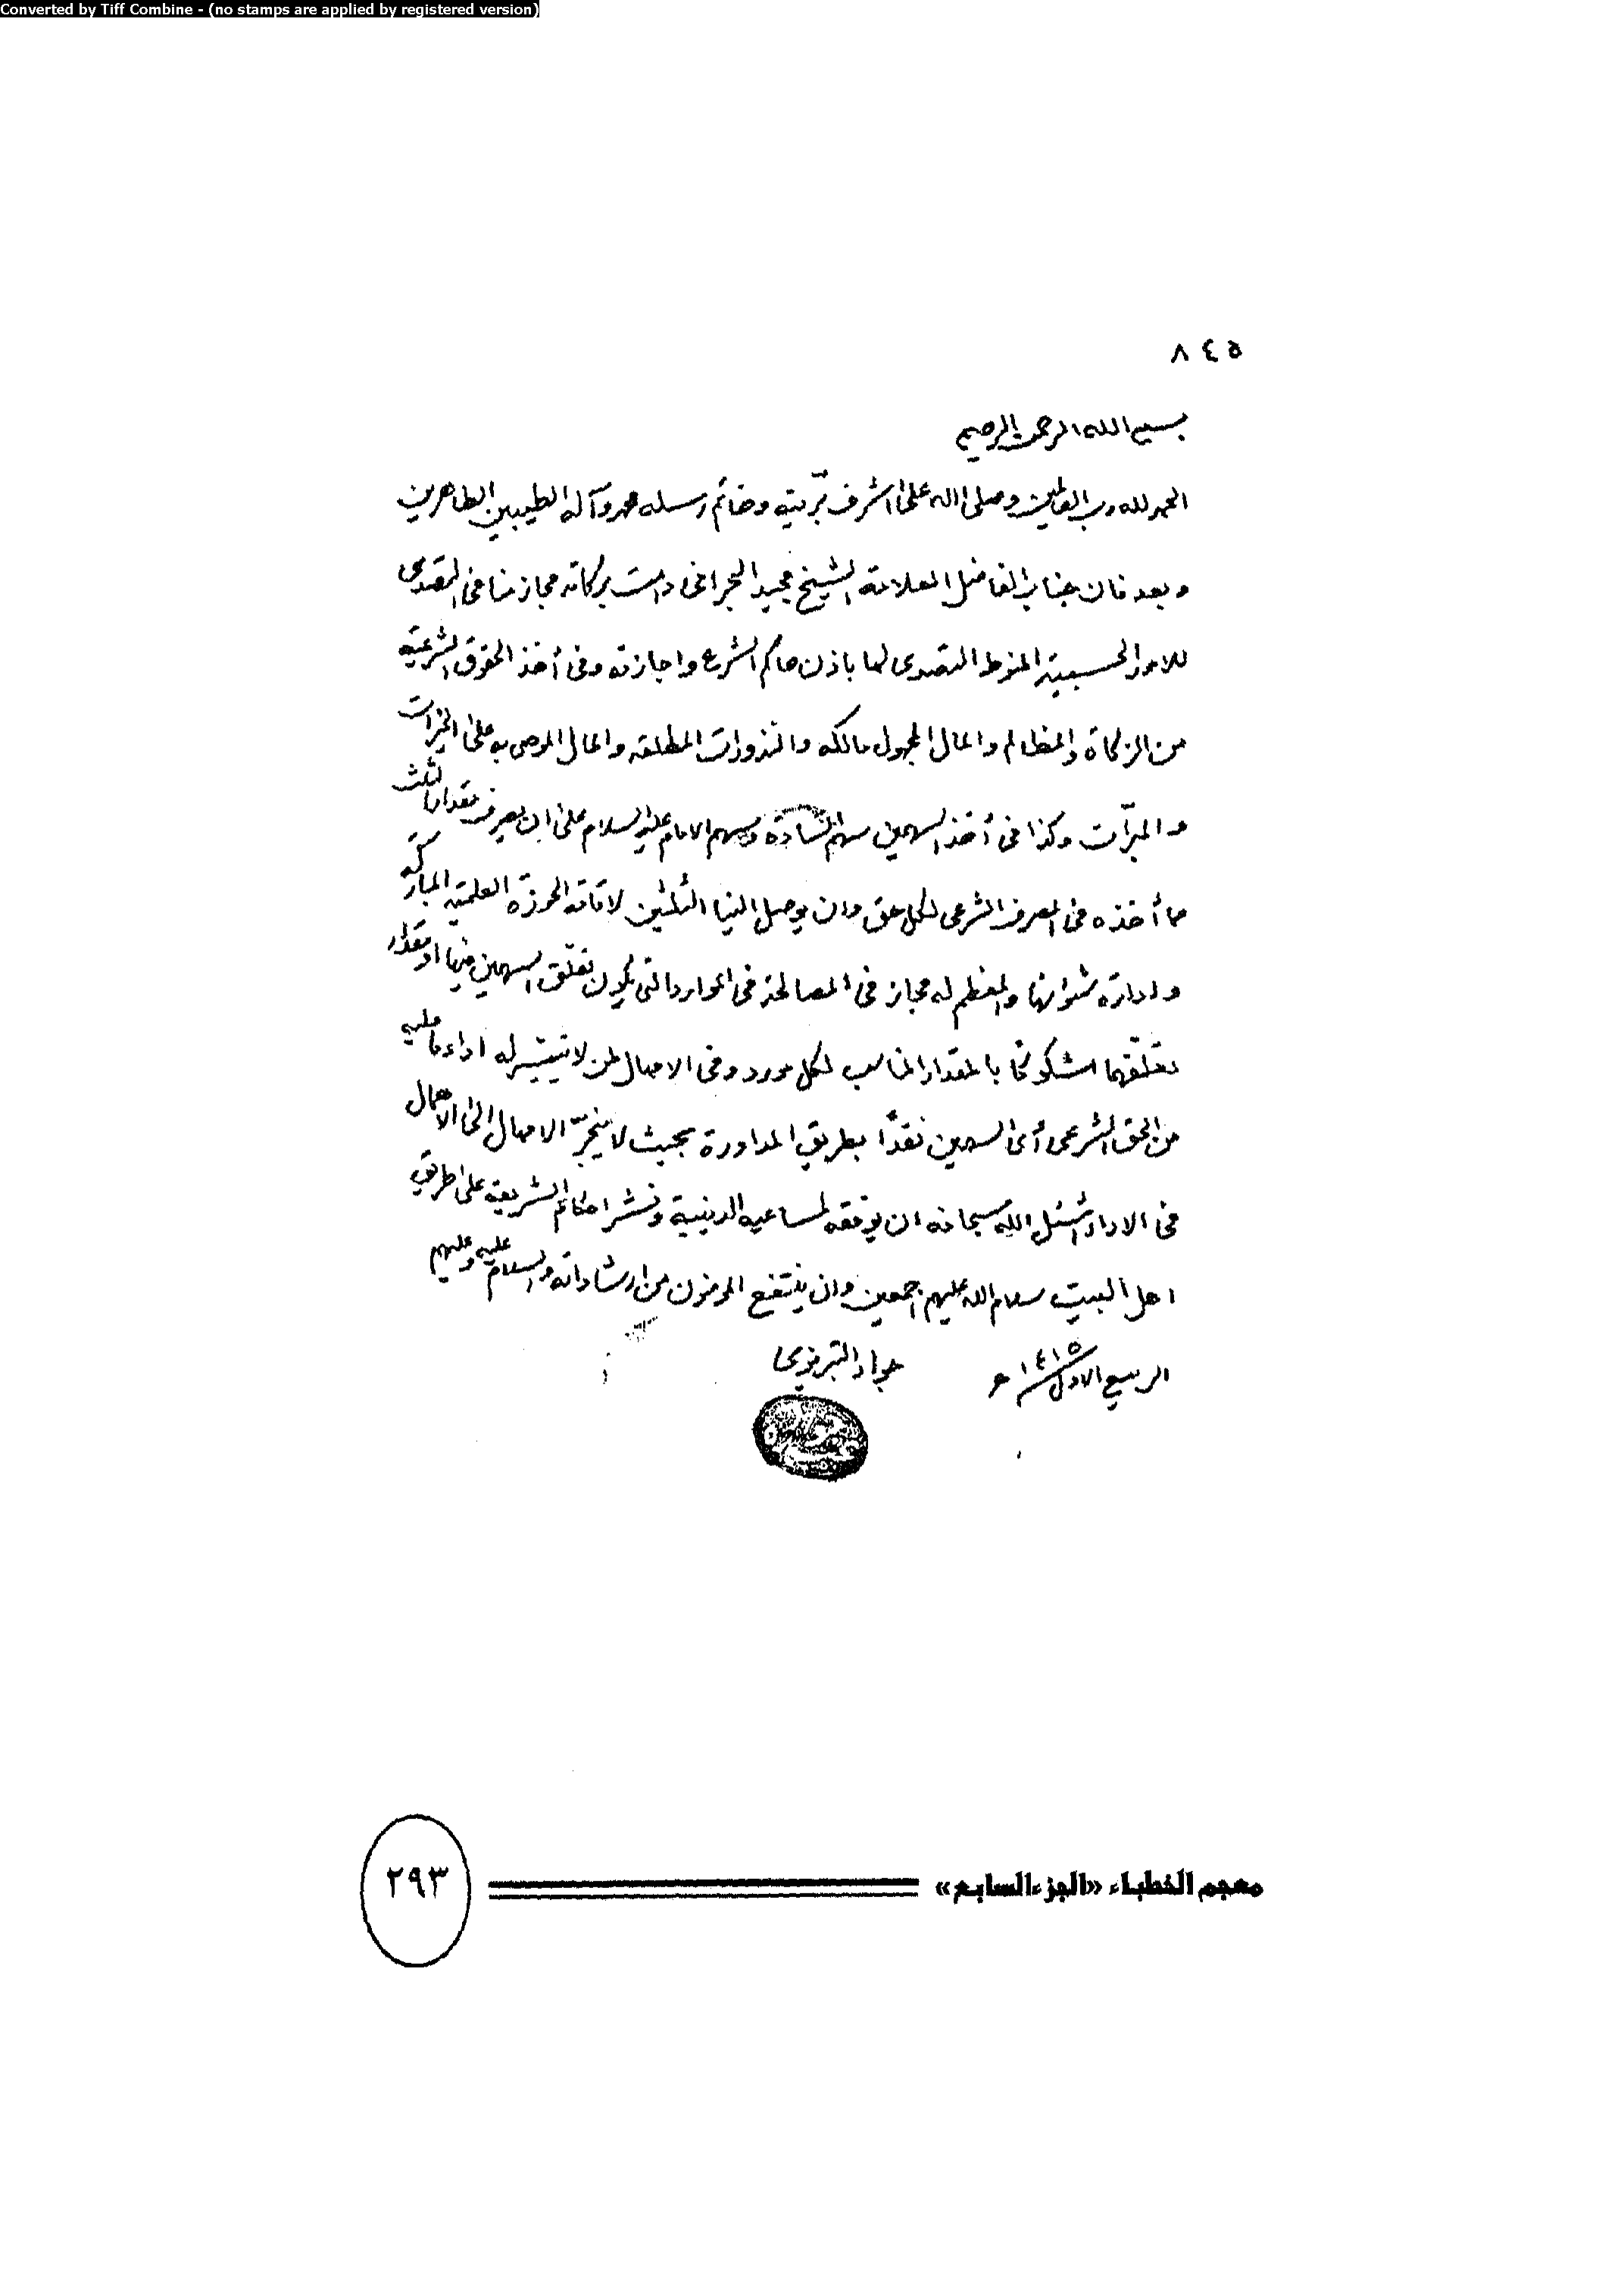 Converted by Tiff Combine - (no stamps are applied by registered version)
٨٤٥
بسم الله الرحمن الرحيم
الحمد لله رب العالمين وصلى الله على اشرف بريته وخاتم رسله محمد وآله الطيبين الطاهرين
وبعد فان جناب الفاضل العلامة الشيخ مجيد دامت بركاته مجاز منا في التصدى
للامور الحسبية المنوط التصدى لها باذن حاكم الشرع واجازته وفي أخذ الحقوق الشرعية
من الزكاة والمظالم والمال المجهول مالكه والنذورات المطلقه والمال الموصى به على الخيرات
والمبرّات وكذا في أخذ السهمين سهم السادة وسهم الامام عليه السلام على ان يصرف مقدار الثلث
مما أخذه في المصرف الشرعى لكل حق وان يوصل الينا الثلثين لاقامة الحوزة العلمية المباركة
وادارة شئوانها والمعظم له مجاز في المصالحة في الموارد التي يكون تعلّق السهمين فيها او مقدار
تعلّقهما مشكوكاً بالمقدار المناسب لكل مورد وفي الامهال لمن لا تيسّر له اداء ما عليه
من الحق الشرعى أى السهمين نقداً بطريق المداورة بحيث لا ينجرّ الامهال الى الاهمال
في الاداء نسئل الله سبحانه ان يوفقه لمساعيه الدينية ونشر احكام الشريعة على طريق
اهل البيت سلام الله عليهم اجمعين وان ينتفع المؤمنون من ارشاداته والسلام عليه وعليهم
الربيع الاول ١٤١٥ ه
جواد التبريزي
معجم الخطباء «الجزء السابع»
٢٩٣